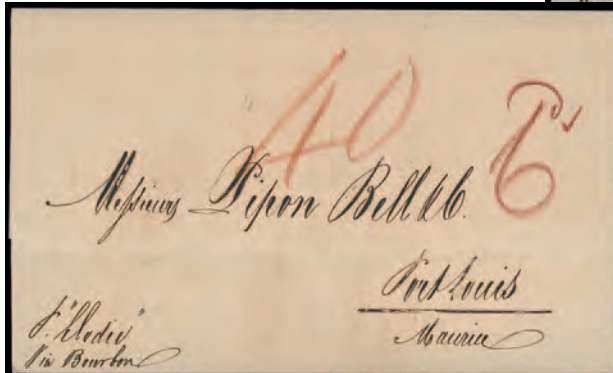 40 6
Messieurs Pipon Bell & Co.
Port Louis
Maurice
P. "Elodie"
Via Bourbon